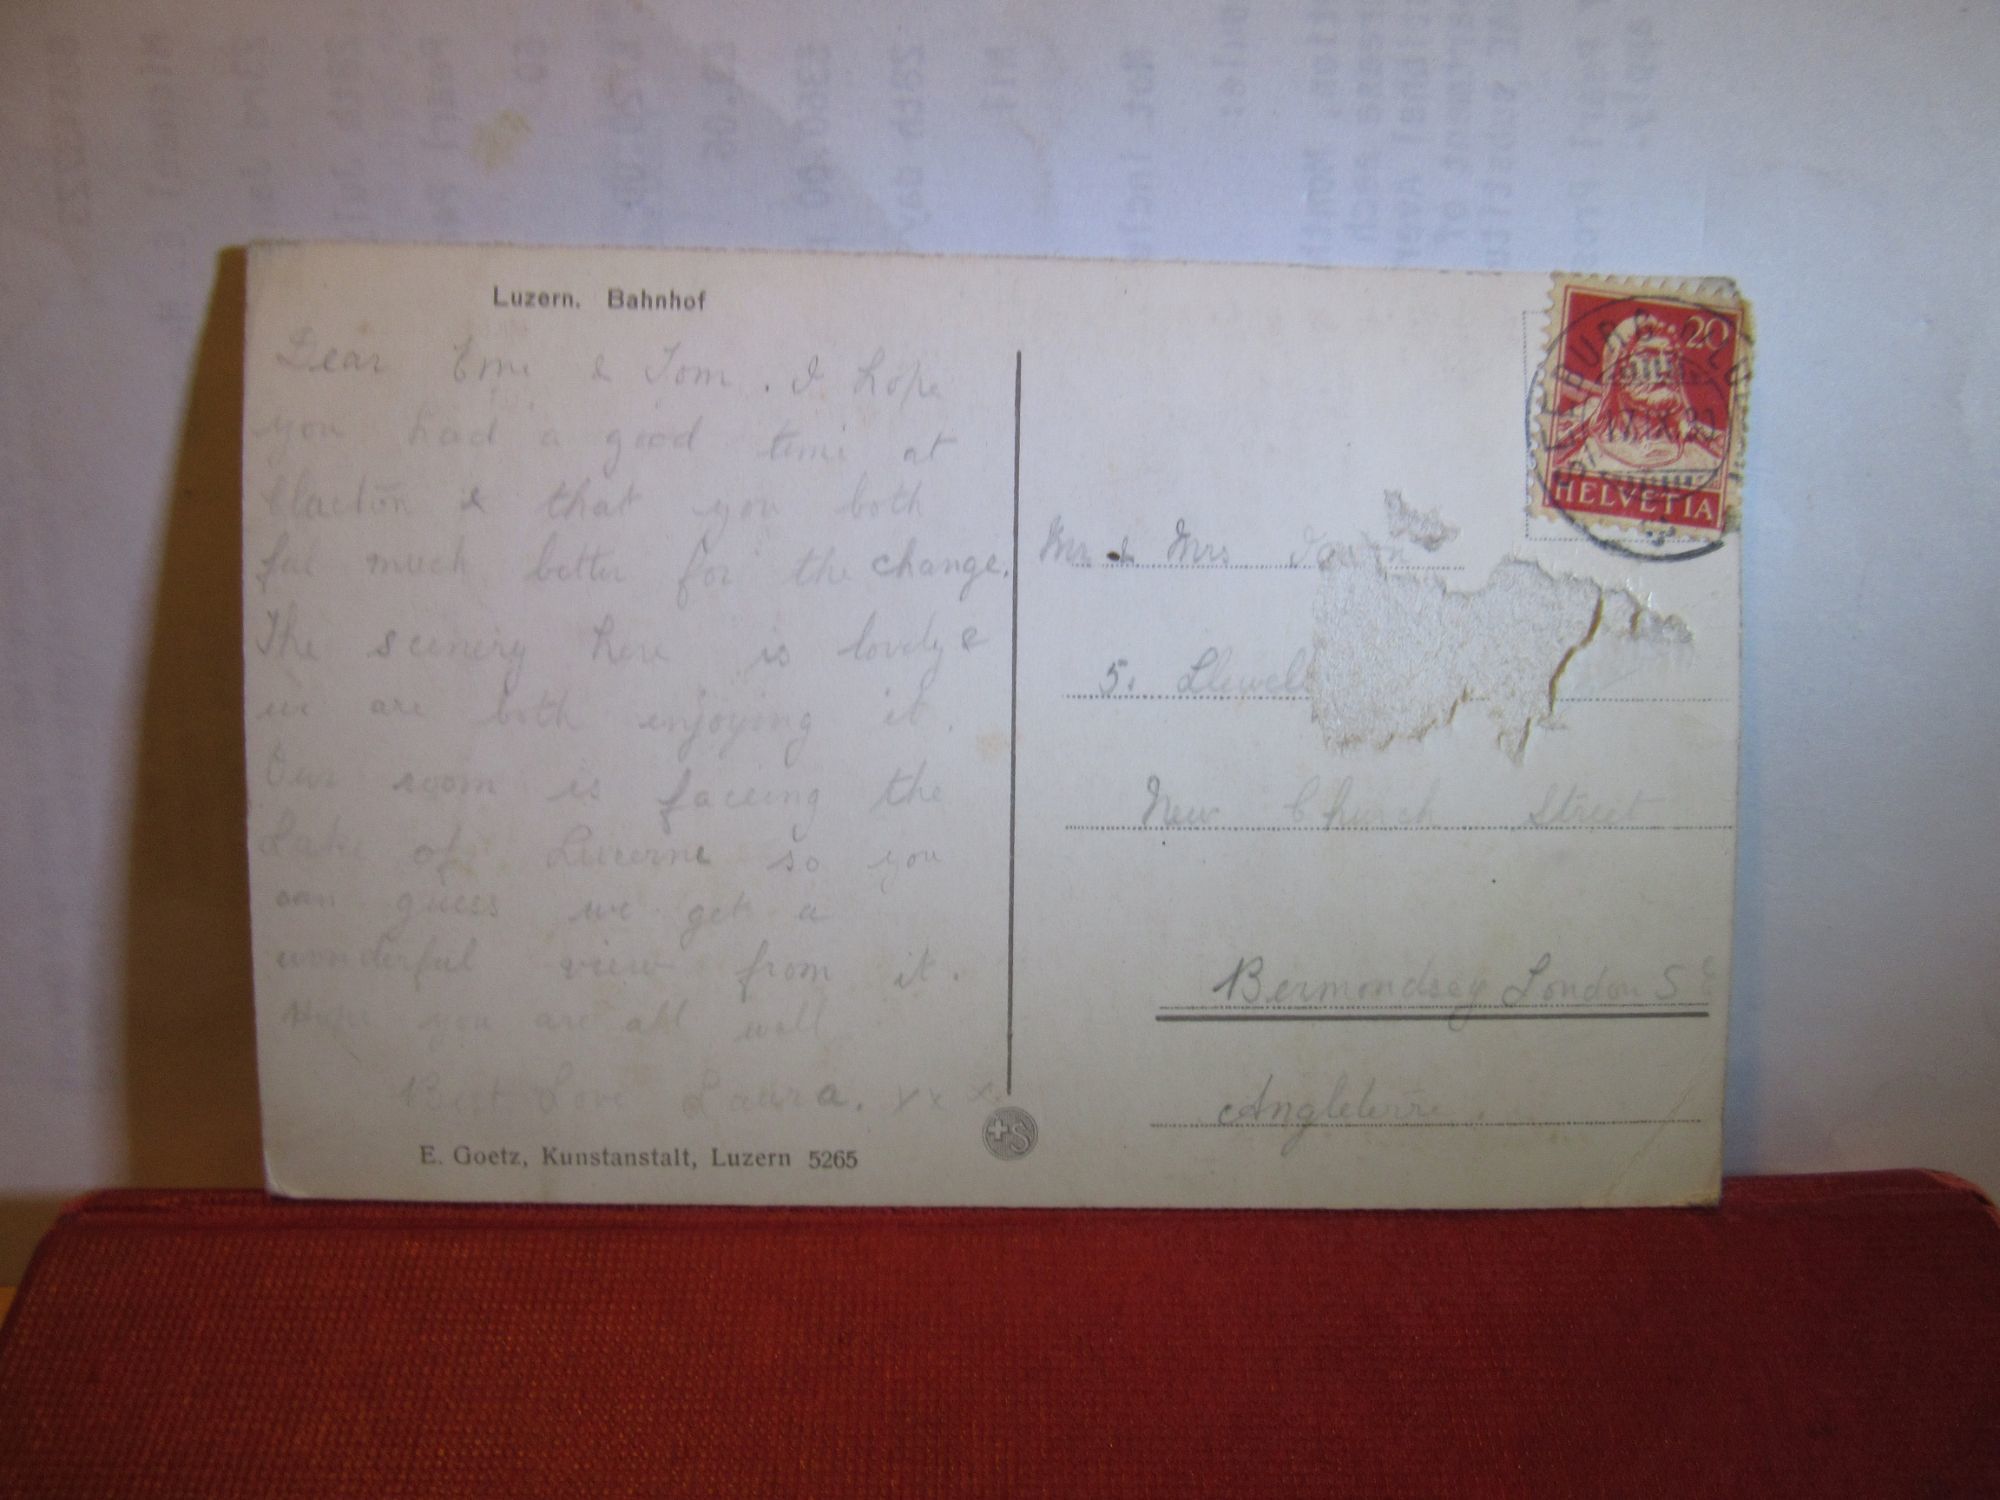 Luzern. Bahnhof
Dear Emi & Tom. I hope
you had a good time at
Clacton & that you both
feel much better for the change.
The scenery here is lovely &
we are both enjoying it.
Our room is faceing the
Lake of Lucerne so you
can guess we get a
wonderful view from it.
Hope you are all well
Best Love Laura. x x x.
E. Goetz, Kunstanstalt, Luzern 5265
+S
20
HELVETIA
17.IX.
Mr & Mrs
5. Llewel
New Church Street
Bermondsey London S E
Angleterre.